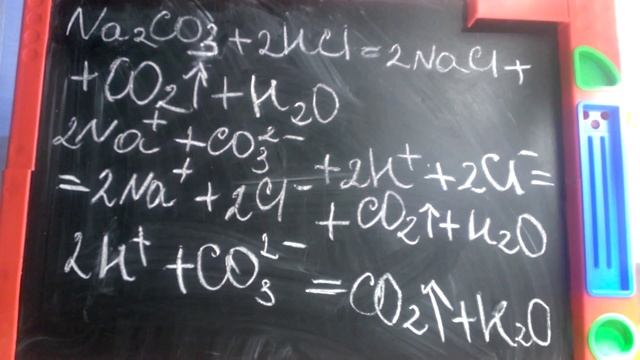 Na₂CO₃ + 2HCl = 2NaCl +
+ CO₂↑ + H₂O
2Na⁺ + CO₃²⁻ + 2H⁺ + 2Cl⁻ =
= 2Na⁺ + 2Cl⁻ + CO₂↑ + H₂O
2H⁺ + CO₃²⁻ = CO₂↑ + H₂O